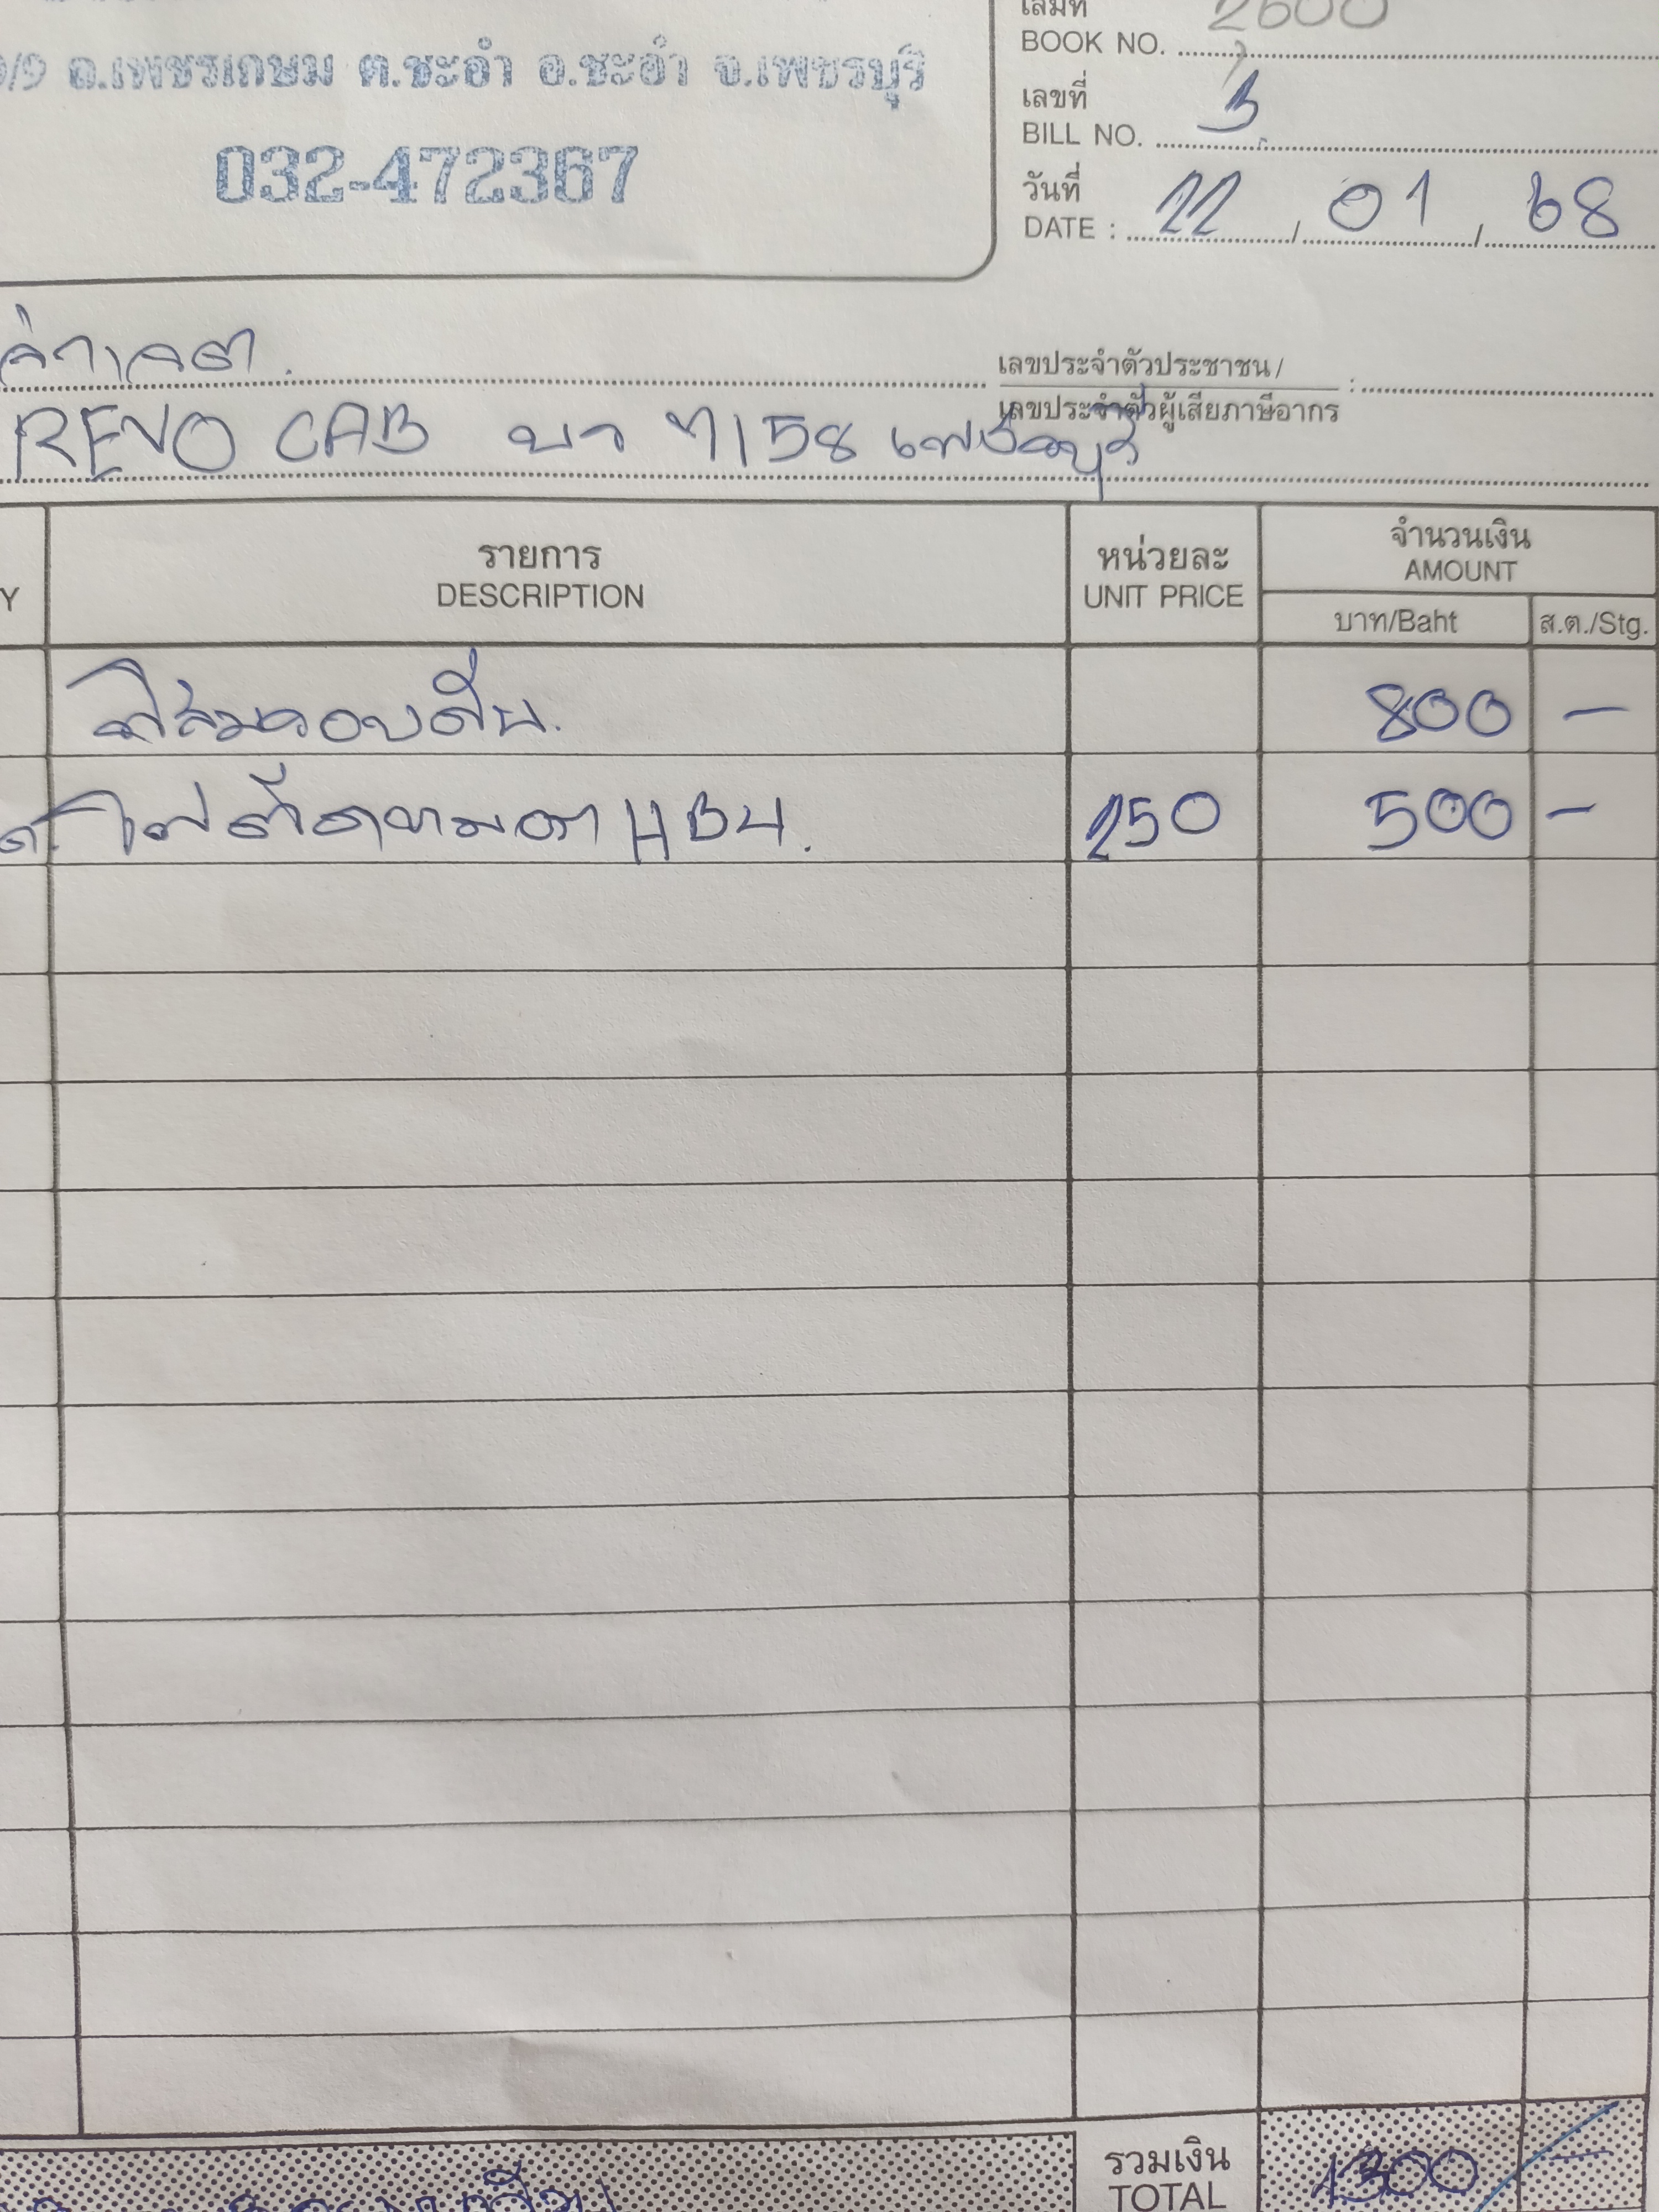 ถ.เพชรเกษม ต.ชะอำ อ.ชะอำ จ.เพชรบุรี
032-472367
เล่มที่
BOOK NO. 2600
เลขที่
BILL NO. 3
วันที่
DATE : 22 / 01 / 68
เลขประจำตัวประชาชน /
เลขประจำตัวผู้เสียภาษีอากร :
REVO CAB บว 7158 เพชรบุรี
รายการ
DESCRIPTION
หน่วยละ
UNIT PRICE
จำนวนเงิน
AMOUNT
บาท/Baht
ส.ต./Stg.
ฟิล์มรอบคัน. 800 -
ไฟตัดหมอก HB4. 250 500 -
รวมเงิน
TOTAL
1300 -